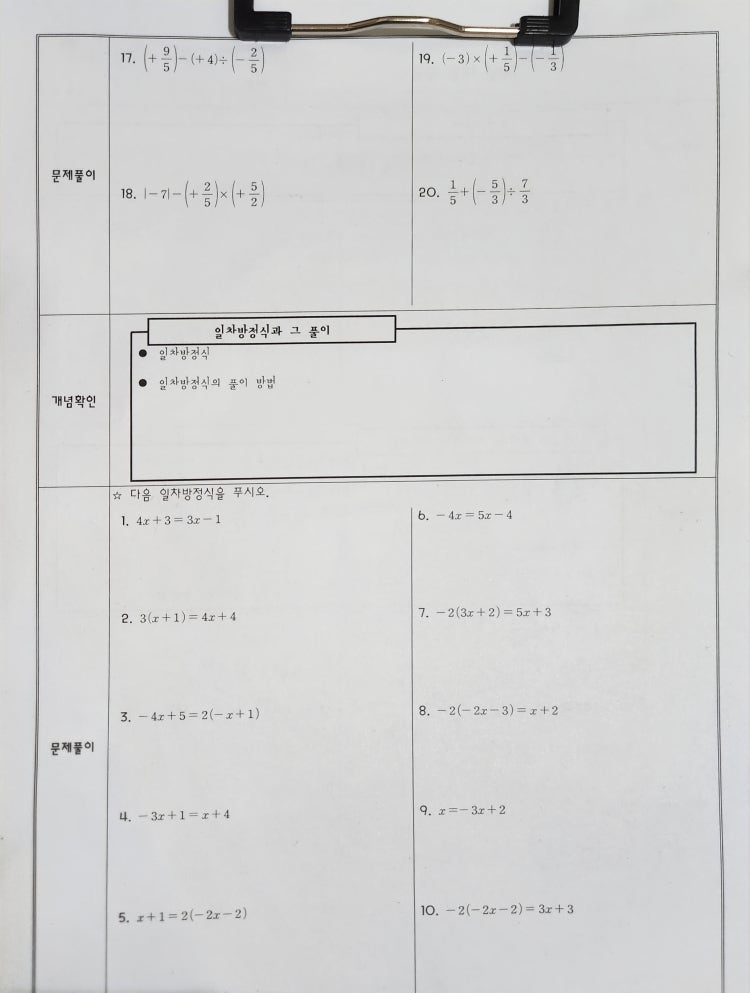 17. (+9/5)-(+4)÷(-2/5)
19. (-3)×(+1/5)-(-1/3)
문제풀이
18. |-7|-(+2/5)×(+5/2)
20. 1/5+(-5/3)÷7/3
일차방정식과 그 풀이
● 일차방정식
● 일차방정식의 풀이 방법
개념확인
☆ 다음 일차방정식을 푸시오.
1. 4x+3=3x-1
6. -4x=5x-4
2. 3(x+1)=4x+4
7. -2(3x+2)=5x+3
3. -4x+5=2(-x+1)
8. -2(-2x-3)=x+2
문제풀이
4. -3x+1=x+4
9. x=-3x+2
5. x+1=2(-2x-2)
10. -2(-2x-2)=3x+3